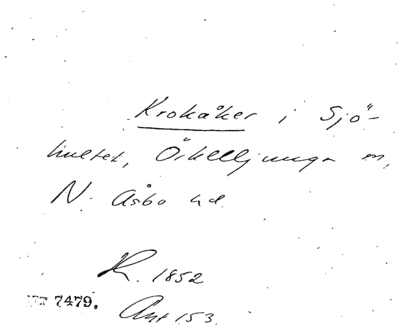 Krokåker i Sjö-
hultet, Örkelljunga m,
N. Åsbo hd.
R. 1852
7479.
Ant 153.